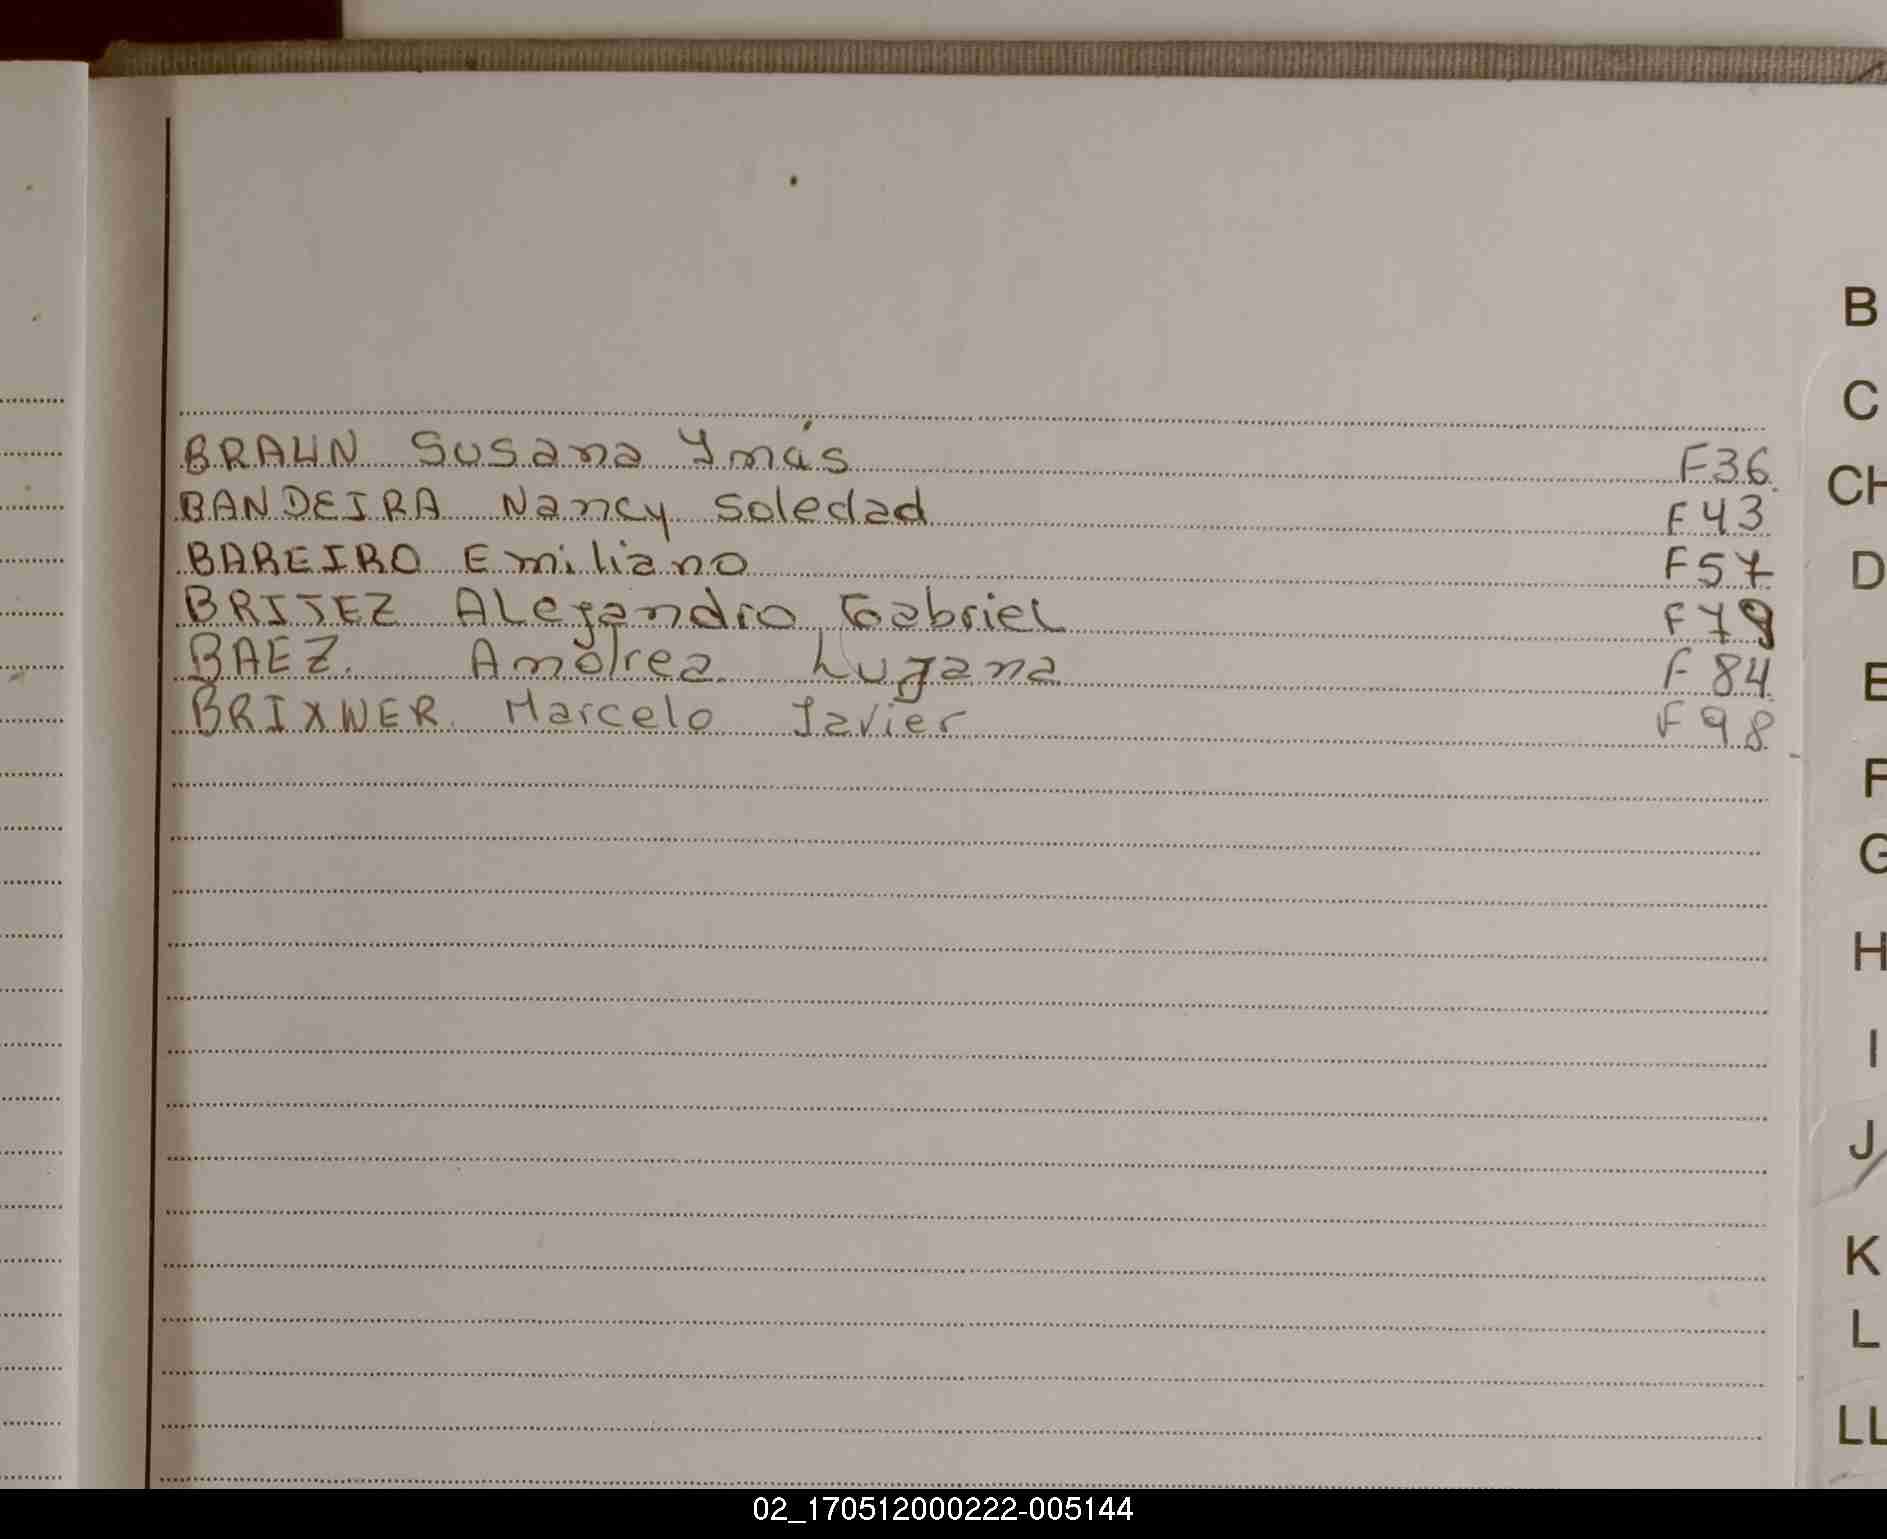 BRAUN Susana Ymás F36
BANDEIRA Nancy Soledad F43
BAREIRO Emiliano F57
BRITEZ Alejandro Gabriel F79
BAEZ. Andrea Lujana F84
BRIXNER. Marcelo Javier F98
B
C
CH
D
E
F
G
H
I
J
K
L
LL
02_170512000222-005144